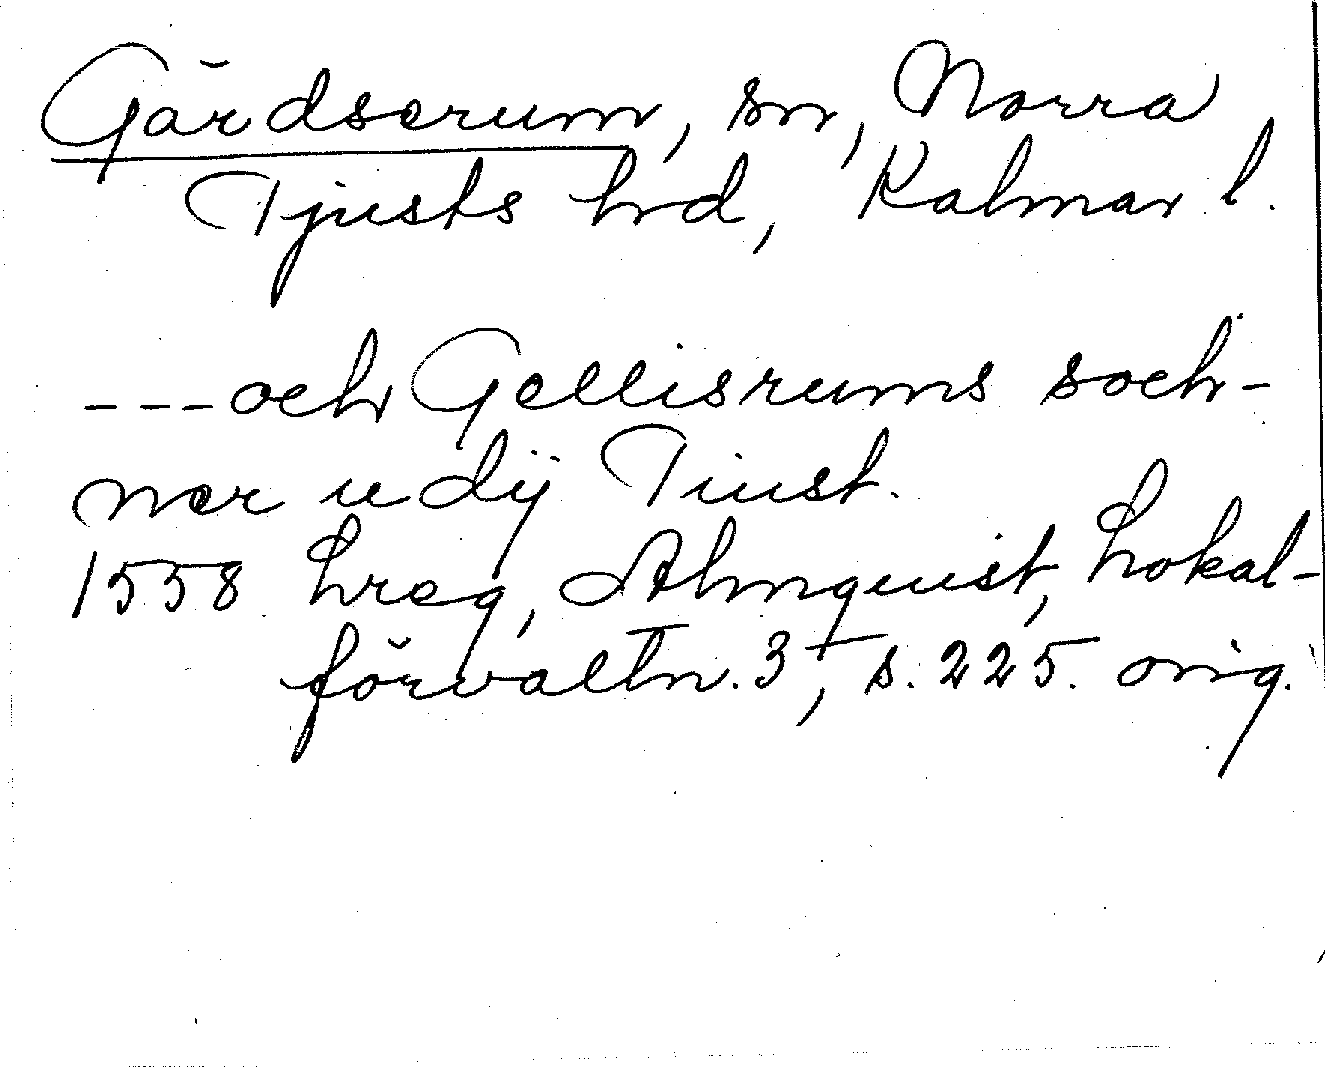 Gärdserum, sn, Norra
Tjusts hrd, Kalmar l.
---och Gellisrums soch-
ner u dÿ Tiust.
1558 Lreg, Almquist, Lokal-
förvaltn. 3, s. 225. orig.